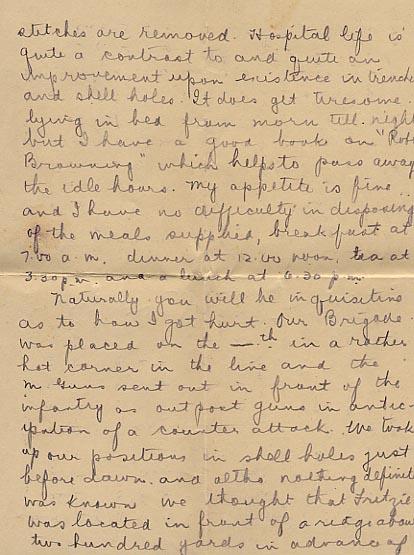 stitches are removed. Hospital life is
quite a contrast to and quite an
improvement upon existence in trenche
and shell holes. It does get tiresome
lying in bed from morn till night
but I have a good book on "Rob
Browning" which helps to pass away
the idle hours. My appetite is fine
and I have no difficulty in disposing
of the meals supplied, breakfast at
7.00 a.m. dinner at 12.00 noon, tea at
3.30 p.m. and a lunch at 6.30 p.m.
Naturally you will be inquisitive
as to how I got hurt. Our Brigade
was placed on the —th in a rather
hot corner in the line and the
m guns sent out in front of the
infantry as outpost guns in antic-
ipation of a counter attack. We took
up our positions in shell holes just
before dawn and altho nothing definit
was known we thought that Fritzie
was located in front of a ridge abou
two hundred yards in advance of